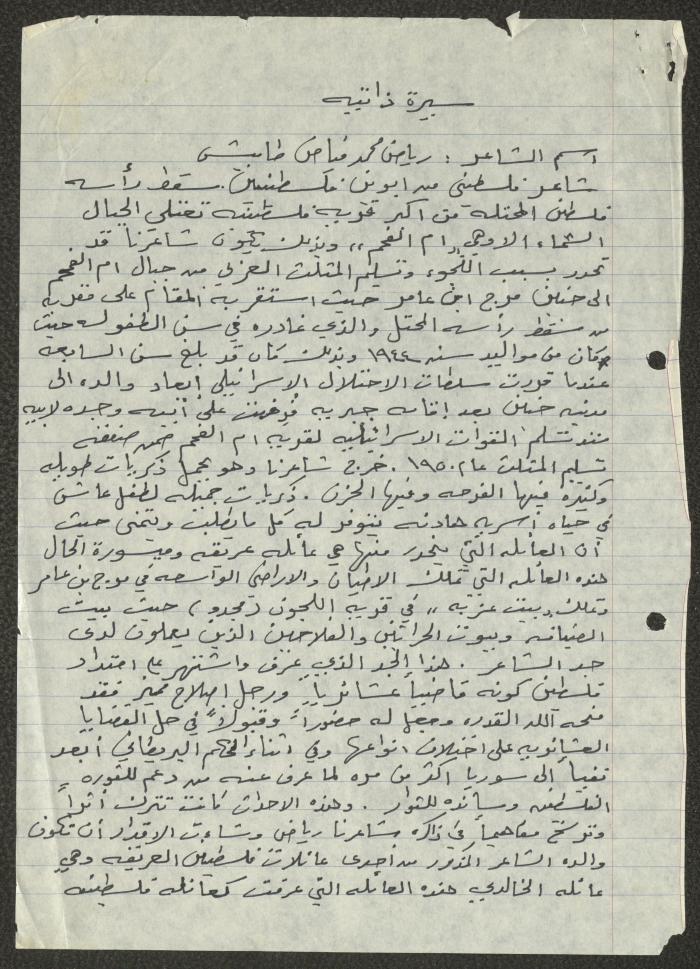 سيرة ذاتيه
اسم الشاعر : رياض محمد فياض طابش
شاعر فلسطيني من ابوين فلسطينيين. سقط رأسه
فلسطين المحتله من اكبر قريه فلسطينيه تعتلي الجبال
الشماء الا وهي "ام الفحم" وبذلك يكون شاعرنا قد
تحدر بسبب اللجوء وتسليم المثلث العربي من جبال ام الفحم
الى جنين مرج ابن عامر حيث استقر به المقام على مقربه
من مسقط رأسه المحتل والذي غادره في سن الطفوله حيث
كان من مواليد سنه ١٩٤٤ وبذلك كان قد بلغ سن السابعه
عندما قررت سلطات الاحتلال الاسرائيلي ابعاد والده الى
مدينه جنين بعد إقامه جبريه فرضت على أبيه وجده لابيه
منذ تسلم القوات الاسرائيليه لقريه ام الفحم ضمن صفقه
تسليم المثلث عام ١٩٥٠. خرج شاعرنا وهو يحمل ذكريات طويله
وكثيره فيها الفرحه وفيها الحزن. ذكريات جميله لطفل عاش
في حياه أسريه هادئه يتوفر له كل ما يطلب ويتمنى حيث
أن العائله التي ينحدر منها هي عائله عريقه وميسورة الحال
هذه العائله التي تملك الاطيان والاراضي الواسعه في مرج بن عامر
وتملك "بيت عزبه" في قريه اللجون (مجدو) حيث بيت
الضيافه وبيوت الحراثين والفلاحين الذين يعملون لدى
جد الشاعر. هذا الجد الذي عرف واشتهر على امتداد
فلسطين كونه قاضياً عشائرياً ورجل اصلاح مميز فقد
منحه الله القدره وجعل له حضوراً وقبولاً في حل القضايا
العشائريه على اختلاف انواعها وفي اثناء الحكم البريطاني أبعد
نفياً إلى سوريا اكثر من مره لما عرف عنه من دعم للثوره
الفلسطينيه ومسانده للثوار. وهذه الاحداث كانت تترك أثراً
وترسخ مفاهيماً في ذاكره شاعرنا رياض وشاءت الاقدار أن تكون
والده الشاعر المذكور من احدى عائلات فلسطين العريقه وهي
عائله الخالدي هذه العائله التي عرفت كعائله فلسطينيه